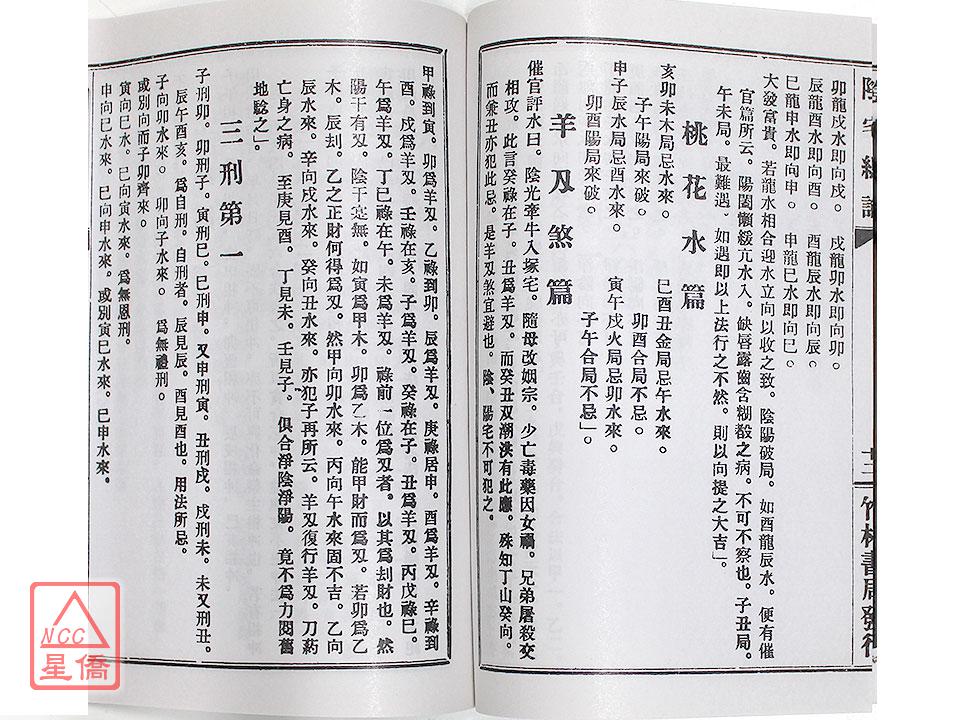 卯龍戌水即向戌。　戌龍卯水即向卯。
辰龍酉水即向酉。　酉龍辰水即向辰。
巳龍申水即向申。　申龍巳水即向巳。
大發富貴。若龍水相合迎水立向以收之致。陰陽破局。如酉龍辰水。便有催
官篇所云。陽闔懶緩亢水入。缺唇露齒含糊殺之病。不可不察也。子丑局。
午未局。最難遇。如遇即以上法行之不然。則以向提之大吉」。
桃花水篇
亥卯未木局忌水來。　巳酉丑金局忌午水來。
子午陽局來破。　卯酉合局不忌。
申子辰水局忌酉水來。　寅午戌火局忌卯水來。
卯酉陽局來破。　子午合局不忌」。
羊刄煞篇
催官評水曰。陰光牽牛入塚宅。隨母改姻宗。少亡毒藥因女禍。兄弟屠殺交
相攻。此言癸祿在子。丑爲羊刄。而癸丑双潮洪有此應。殊知丁山癸向。
而兼丑亦犯此忌。是羊刄煞宜避也。陰、陽宅不可犯之。
甲祿到寅。卯爲羊刄。乙祿到卯。辰爲羊刄。庚祿居申。酉爲羊刄。辛祿到
酉。戌爲羊刄。壬祿在亥。子爲羊刄。癸祿在子。丑爲羊刄。丙戊祿巳。
午爲羊刄。丁巳祿在午。未爲羊刄。祿前一位爲刄者。以其爲刦財也。然
陽干有刄。陰干是無。如寅爲甲木。卯爲乙木。能甲財而爲刄。若卯爲乙
木。辰刦。乙之正財何得爲刄。然甲向卯水來。丙向午水來固不吉。乙向
辰水來。辛向戌水來。癸向丑水來。亦犯子再所云。羊刄復行羊刄。刀葯
亡身之病。至庚見酉。丁見未。壬見子。俱合淨陰淨陽。竟不爲力閱舊
地驗之」。
三刑第一
子刑卯。卯刑子。寅刑巳。巳刑申。又申刑寅。丑刑戌。戌刑未。未又刑丑。
辰午酉亥。爲自刑。自刑者。辰見辰。酉見酉也。用法所忌。
子向卯水來。　卯向子水來。　爲無禮刑。
或別向而子卯齊來。
寅向巳水。巳向寅水來。爲無恩刑。
申向巳水來。巳向申水來。或別寅巳水來。巳申水來。
十二
竹林書局發行
NCC
星僑